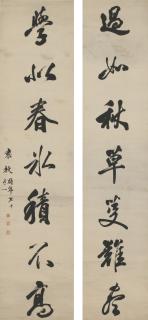 過如秋草芟難盡
學似春冰積不高
袁枚